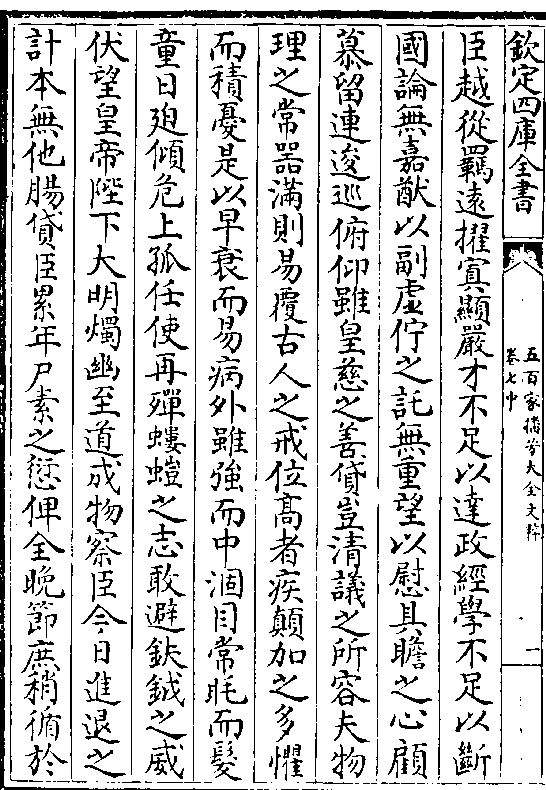 欽定四庫全書
五百家播芳大全文粹
卷七中
一
臣越從羈遠擢寘顯嚴才不足以達政經學不足以斷
國論無嘉猷以副虛佇之託無重望以慰具瞻之心顧
慕留連逡巡俯仰雖皇慈之善貸豈清議之所容夫物
理之常器滿則易覆古人之戒位高者疾顛加之多懼
而積憂是以早衰而易病外雖強而中涸目常眊而髮
童日廹傾危上孤任使再殫螻螘之志敢避鈇鉞之威
伏望皇帝陛下大明燭幽至道成物察臣今日進退之
計本無他腸貸臣累年尸素之愆俾全晚節庶稍循於